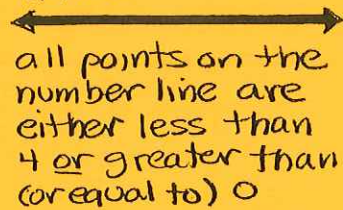 all points on the
number line are
either less than
4 or greater than
(or equal to) 0